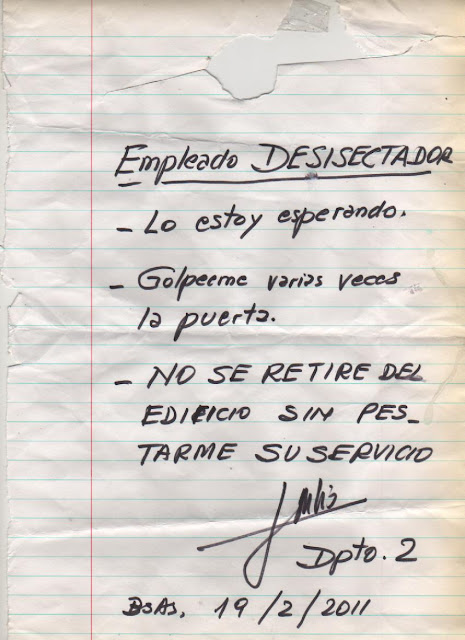 Empleado DESISECTADOR
- Lo estoy esperando.
- Golpeeme varias veces
la puerta.
- NO SE RETIRE DEL
EDIFICIO SIN PES_
TARME SU SERVICIO
Dpto. 2
BsAs, 19/2/2011